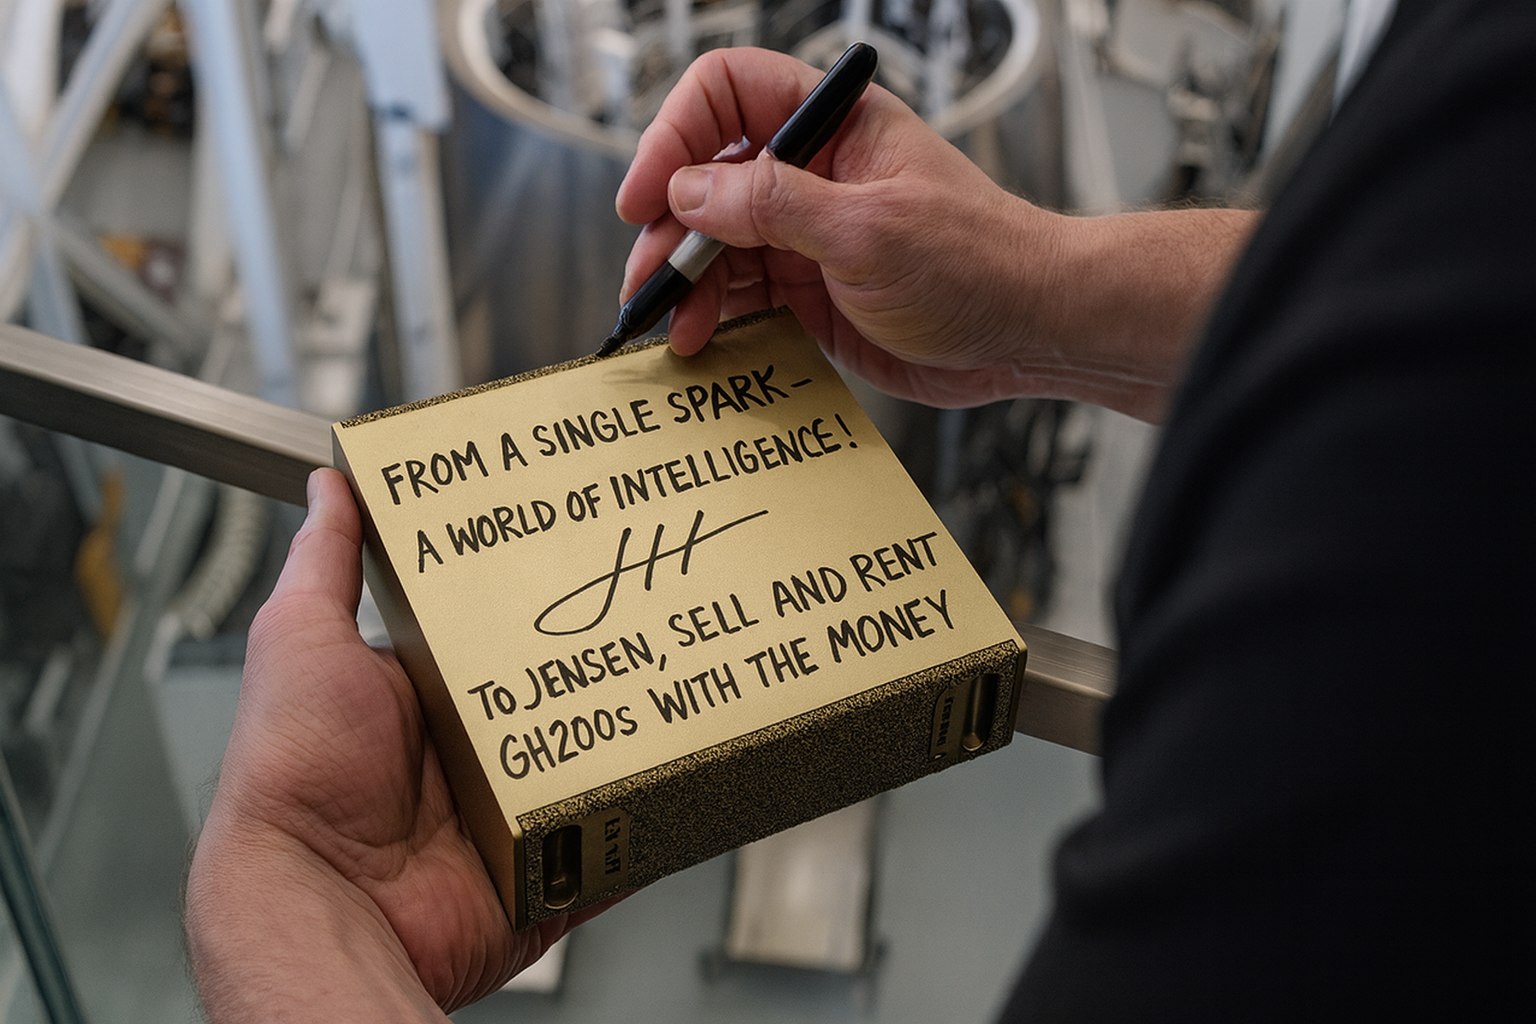 FROM A SINGLE SPARK–
A WORLD OF INTELLIGENCE!
TO JENSEN, SELL AND RENT
GH200s WITH THE MONEY